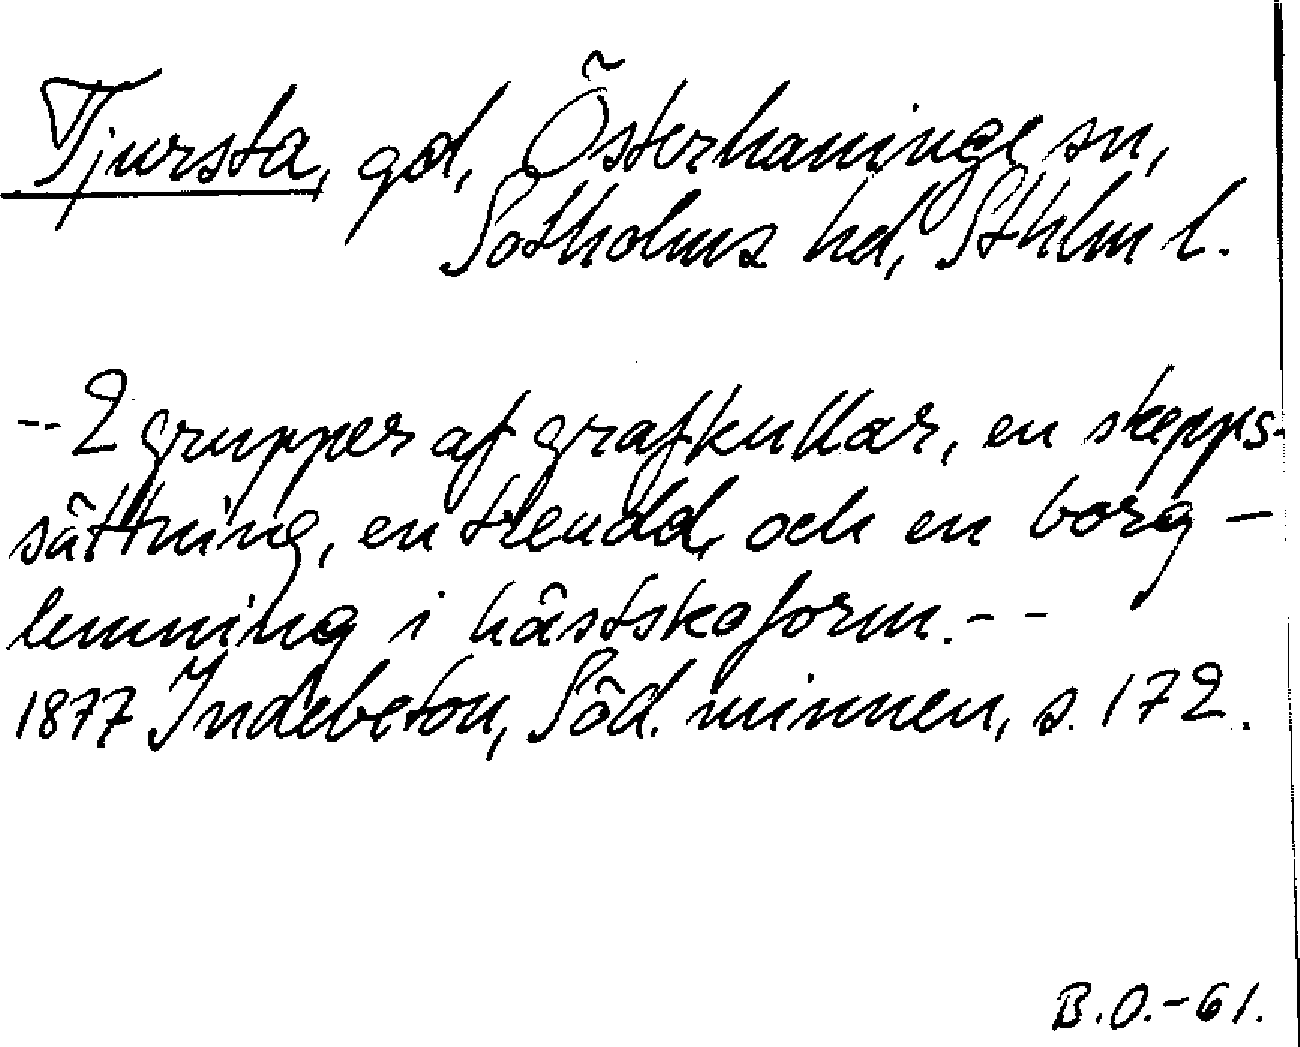 Tjursta, gd, Österhaninge sn,
Sotholms hd, Sthlm l.
-- 2 grupper af grafkullar, en skepps-
sättning, en treudd, och en borg-
lemning i hästskoform. --
1877 Indebetou, Söd. minnen, s. 172.
B.O.-61.